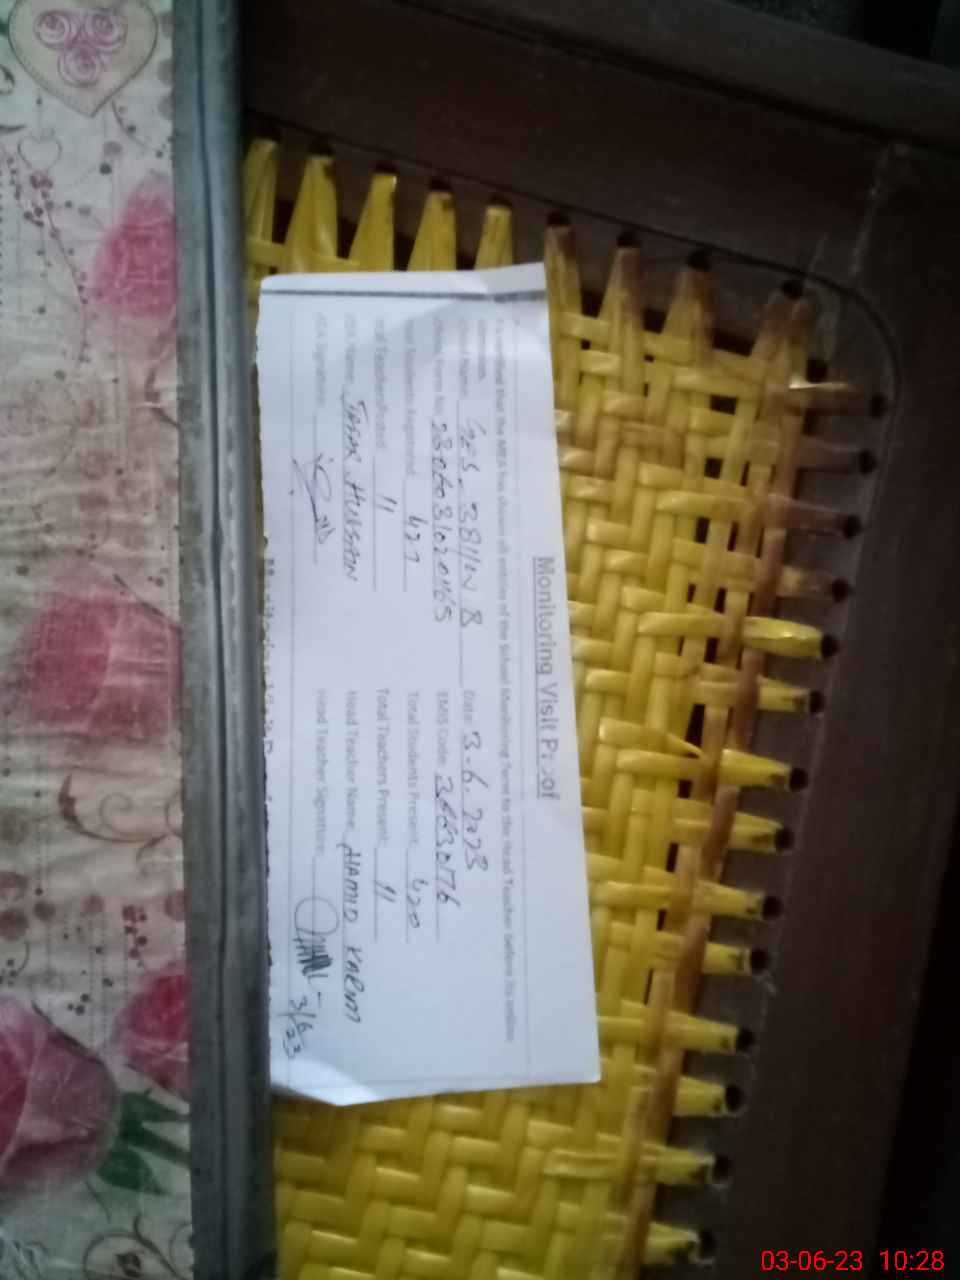 Monitoring Visit Proof
It is certified that the MEA has shown all entries of the School Monitoring Form to the Head Teacher before its online
submission.
School Name: Date: 3.6.2023
School Form No: 230603102046S EMIS Code:
Total Students Registered: 427 Total Students Present: 420
Total Teachers Posted: 11 Total Teachers Present: 11
MEA Name: HUSSAIN Head Teacher Name: HAMID KARIM
MEA Signature: Head Teacher Signature:
3/6/23
03-06-23 10:28